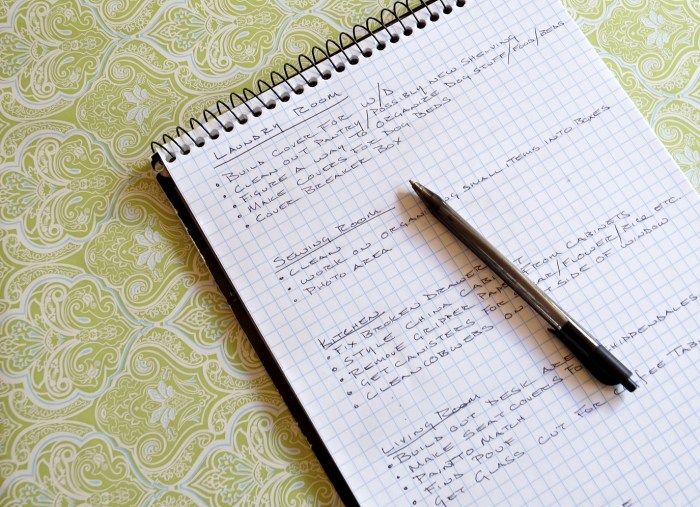 LAUNDRY ROOM
• BUILD COVER FOR W/D
• CLEAN OUT PANTRY/POSSIBLY NEW SHELVING
• FIGURE A WAY TO ORGANIZE DOG STUFF/FOOD/BEDS
• MAKE COVERS FOR DOG BEDS
• COVER BREAKER BOX
SEWING ROOM
• CLEAN
• WORK ON ORGAN NG SMALL ITEMS INTO BOXES
• PHOTO AREA
KITCHEN
• FIX BROKEN DRAWER
• STYLE CHINA CAB T
• REMOVE GRIPPER PAP FROM CABINETS
• GET CANISTERS FOR AR/FLOWER/RICE ETC.
• CLEAN COBWEBS ON TSIDE OF WINDOW
LIVING ROOM
• BUILD OUT DESK ARE
• MAKE SEAT COVERS FO HIPPENDALE
• PAINT TO MATCH
• FIND POUF
• GET GLASS CUT FOR FEE TAB